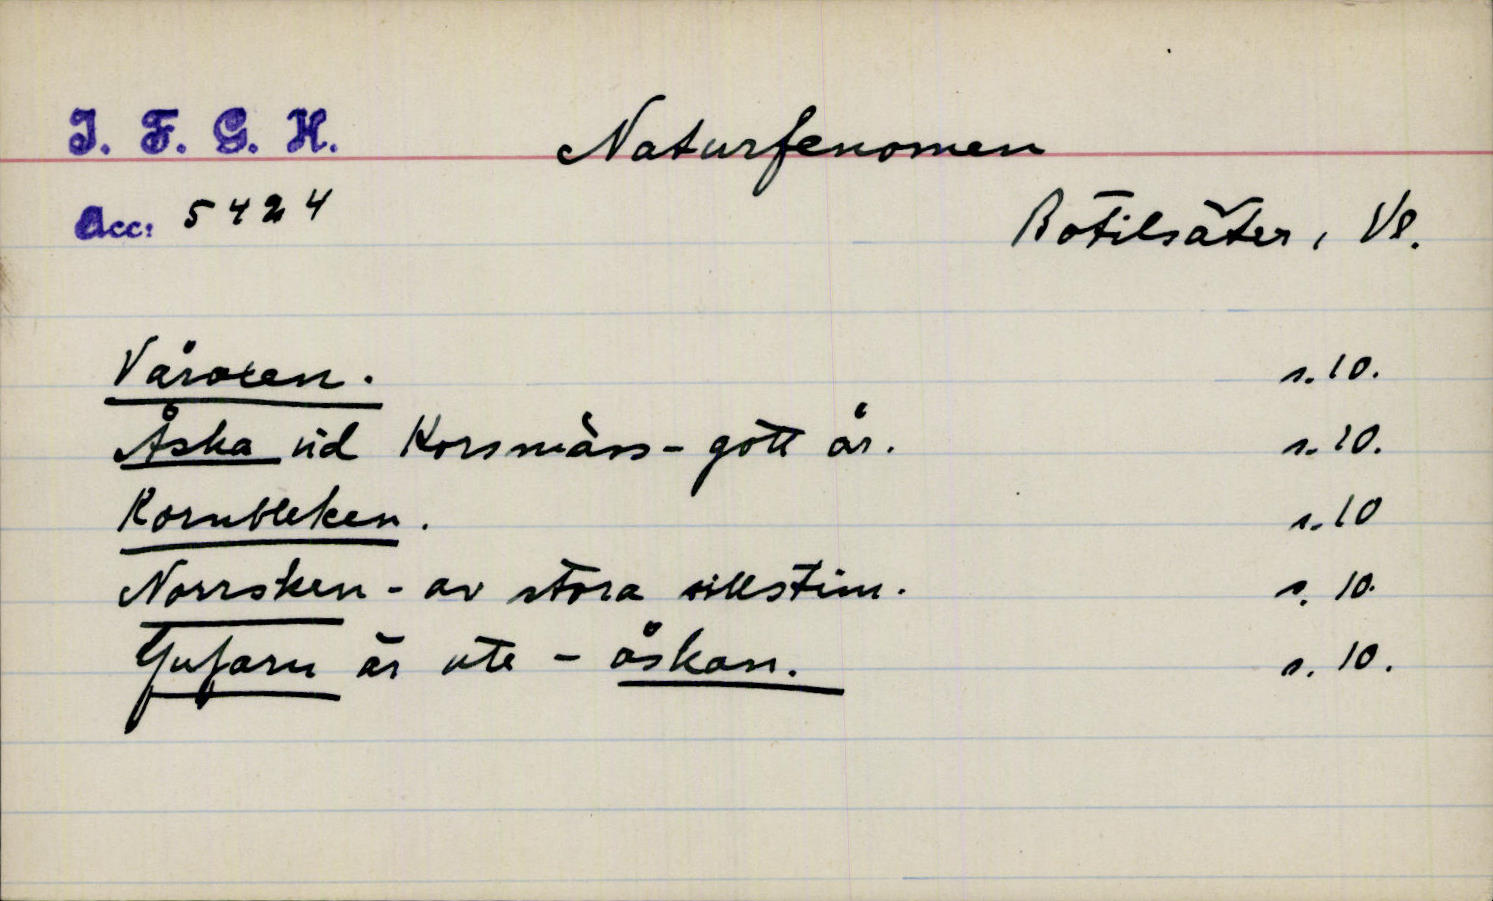 I. F. G. H.
Naturfenomen
Acc: 5424
Botilsäter, Vl.
Våroxen. s. 10.
Åska vid Korsmäss - gott år. s. 10.
Kornbleken. s. 10
Norrsken - av stora sillstim. s. 10.
Gufarn är ute - åskan. s. 10.